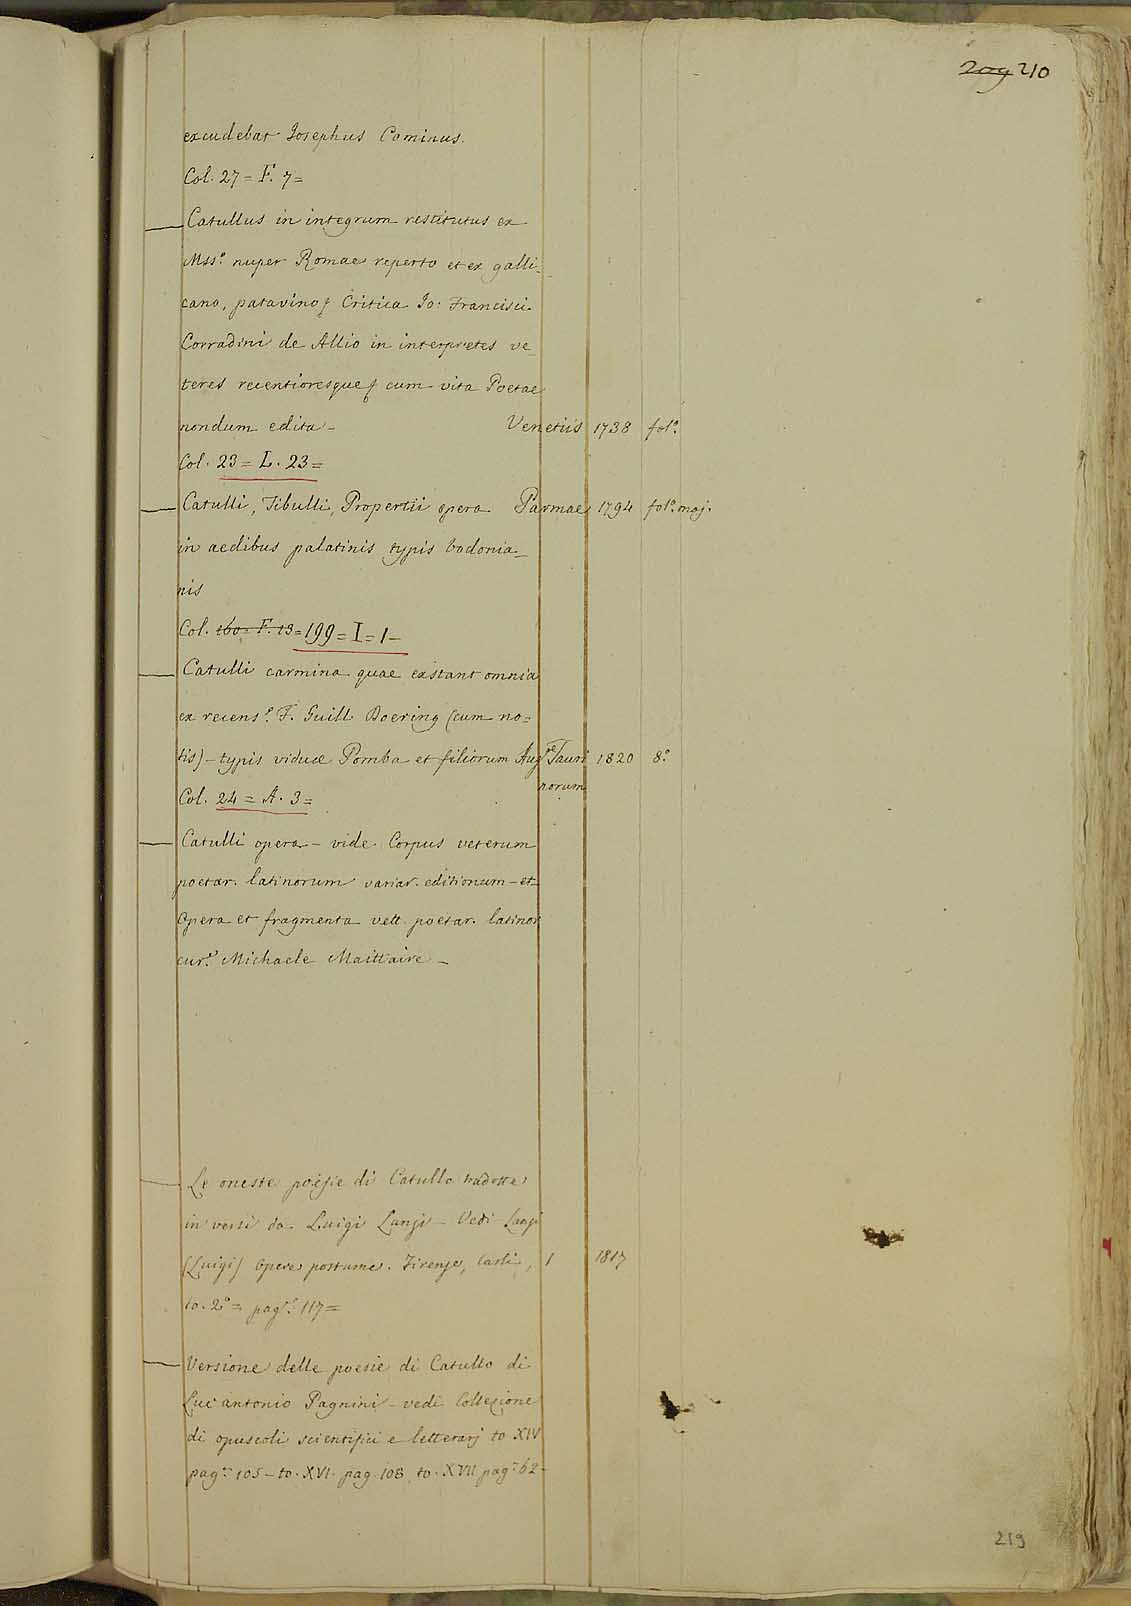 209 210
excudebat Josephus Cominus.
Col. 27 = F. 7 =
Catullus in integrum restitutus ex
Mss.º nuper Romae reperto et ex galli-
cano, patavino, Critica Jo: Francisci
Corradini de Allio in interpretes ve-
teres recentioresque, cum vita Poetae
nondum edita - Venetiis 1738 folº.
Col. 23 = L. 23 =
Catulli, Tibulli, Propertii opera Parmae 1794 folº. maj.
in aedibus palatinis typis bodonia-
nis
Col. 160 = F. 13 = 199 = I = 1 -
Catulli carmina quae exstant omnia
ex recens.e F. Guill Doering (cum no=
tis) - typis viduae Pomba et filiorum Aug.e Tauri 1820 8º.
norum
Col. 24 = A. 3 =
Catulli opera - vide Corpus veterum
poetar. latinorum variar. editionum - et
Opera et fragmenta vett. poetar. latinor
cur.e Michaele Maittaire -
Le oneste poesie di Catullo tradotte
in versi da Luigi Lanzi - Vedi Lanzi
(Luigi) Opere postume. Firenze, Carli, 1 1817
to. 2º = pag.e 117 =
Versione delle poesie di Catullo di
Luc'antonio Pagnini - vedi Collezione
di opuscoli scientifici e letterarj to XIV
pag.e 105 - to. XVI. pag 108 to. XVII pag.e 62 -
219